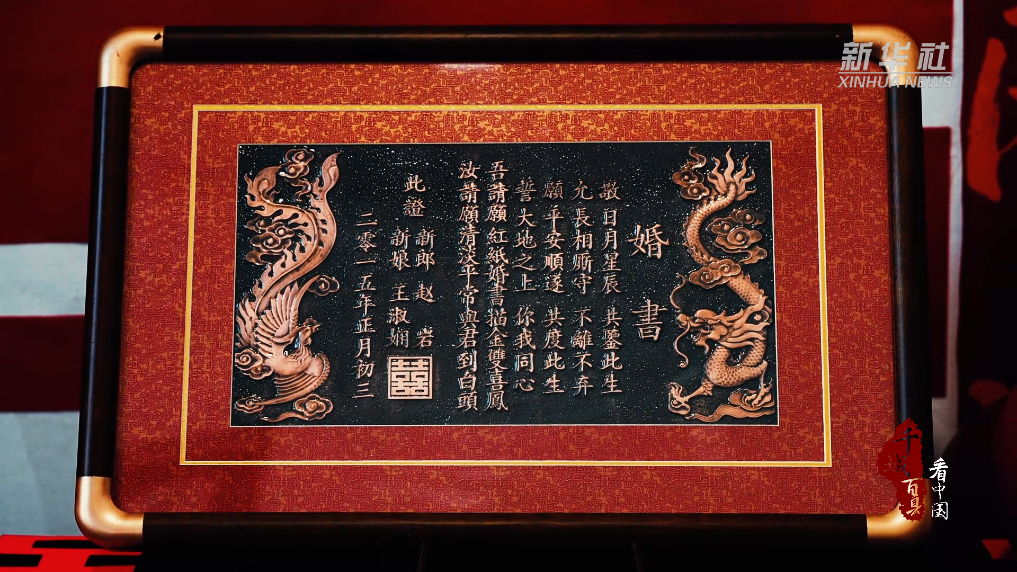 新华社
XINHUA NEWS
婚書
敬日月星辰 共鑒此生
允長相廝守 不離不弃
願平安順遂 共度此生
誓大地之上 你我同心
吾請願紅紙婚書描金雙喜鳳
汝請願清淡平常與君到白頭
此證
新郎 赵岩
新娘 王淑娴
二零一五年正月初三
囍
千城百县
看中国